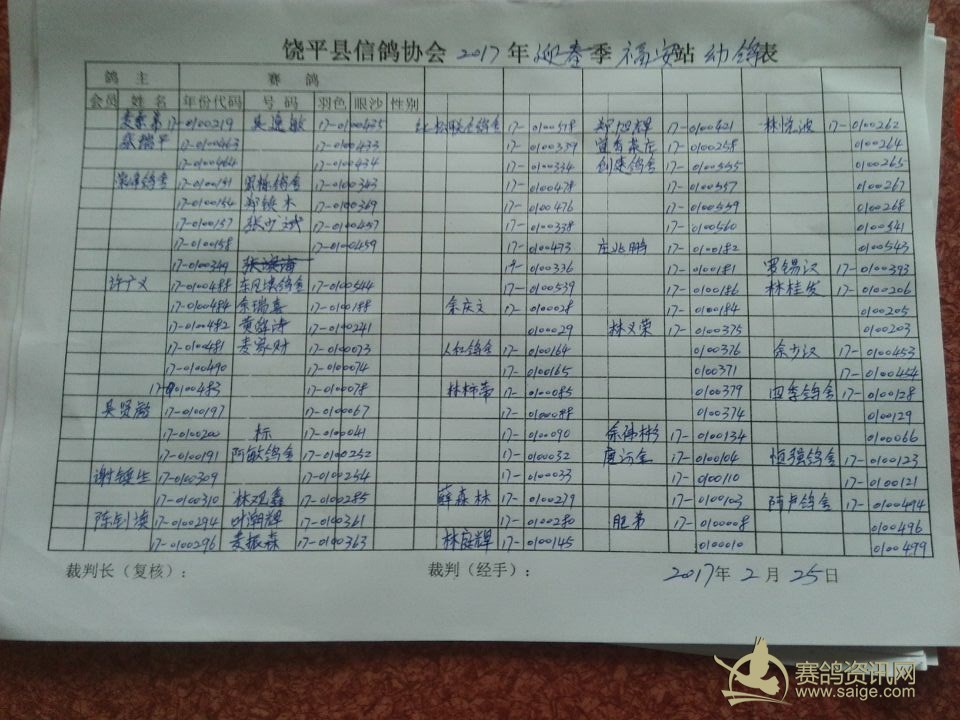 饶平县信鸽协会 2017 年 迎春 季 福安 站 幼鸽 表
鸽 主 赛 鸽
会员 姓 名 年份代码 号 码 羽色 眼沙 性别
17-0100219 吴逸敏 17-0100435 17- 0100578 郑旭辉 17- 0100421 林悦波 17- 0100262
张瑞平 17-0100463 17-0100433 17- 0100339 17- 0100258 0100264
17-0100464 17-0100434 17- 0100334 创建鸽舍 17- 0100555 0100265
17-0100151 17-0100343 17- 0100478 17- 0100557 0100267
17-0100154 17-0100369 17- 0100476 17- 0100559 0100268
17-0100157 张少斌 17-0100457 17- 0100338 17- 0100560 0100541
17-0100158 17-0100459 17- 0100473 庄兆鹏 17- 0100182 0100543
17-0100349 17- 0100336 17- 0100181 罗锡汉 17- 0100393
许广义 17-0100488 17-0100544 17- 0100539 17- 0100186 林桂发 17- 0100206
17-0100484 余瑞喜 17-0100188 余庆文 17- 0100028 17- 0100184 0100205
17-0100482 黄舜涛 17-0100241 0100029 林义荣 17- 0100375 0100203
17-0100481 麦家财 17-0100073 人和鸽舍 17- 0100164 0100376 余少汉 17- 0100453
17-0100490 17-0100074 17- 0100165 0100371 17- 0100454
17-0100483 17-0100078 17- 0100085 0100379 四季鸽舍 17- 0100128
吴贤敏 17-0100197 17-0100067 17- 0100088 0100374 0100129
17-0100200 标 17-0100041 17- 0100090 17- 0100134 0100066
17-0100191 阿敏鸽舍 17-0100252 17- 0100032 17- 0100104 恒强鸽舍 17- 0100123
17-0100309 17-0100254 17- 0100033 17- 0100110 17- 0100121
17-0100310 17-0100285 薛森林 17- 0100279 17- 0100103 阿卢鸽舍 17- 0100494
17-0100294 叶潮辉 17-0100361 17- 0100280 肥弟 17- 0100008 0100496
17-0100296 麦振森 17-0100363 林庭辉 17- 0100145 0100010 0100499
裁判长（复核）： 裁判（经手）： 2017 年 2 月 25 日
赛鸽资讯网
www.saige.com